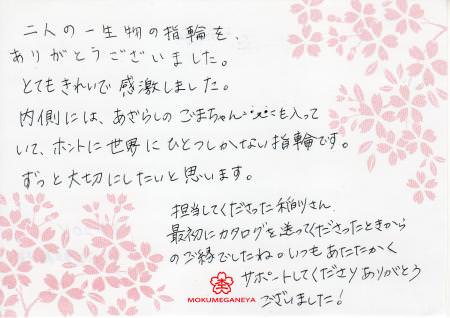 二人の一生物の指輪を、
ありがとうございました。
とてもきれいで感激しました。
内側には、あざらしのごまちゃんも入って
いて、ホントに世界にひとつしかない指輪です。
ずっと大切にしたいと思います。
担当してくださった稲さん、
最初にカタログを送ってくださったときから
のご縁でしたね。いつもあたたかく
サポートしてくださりありがとう
ございました!
MOKUMEGANEYA